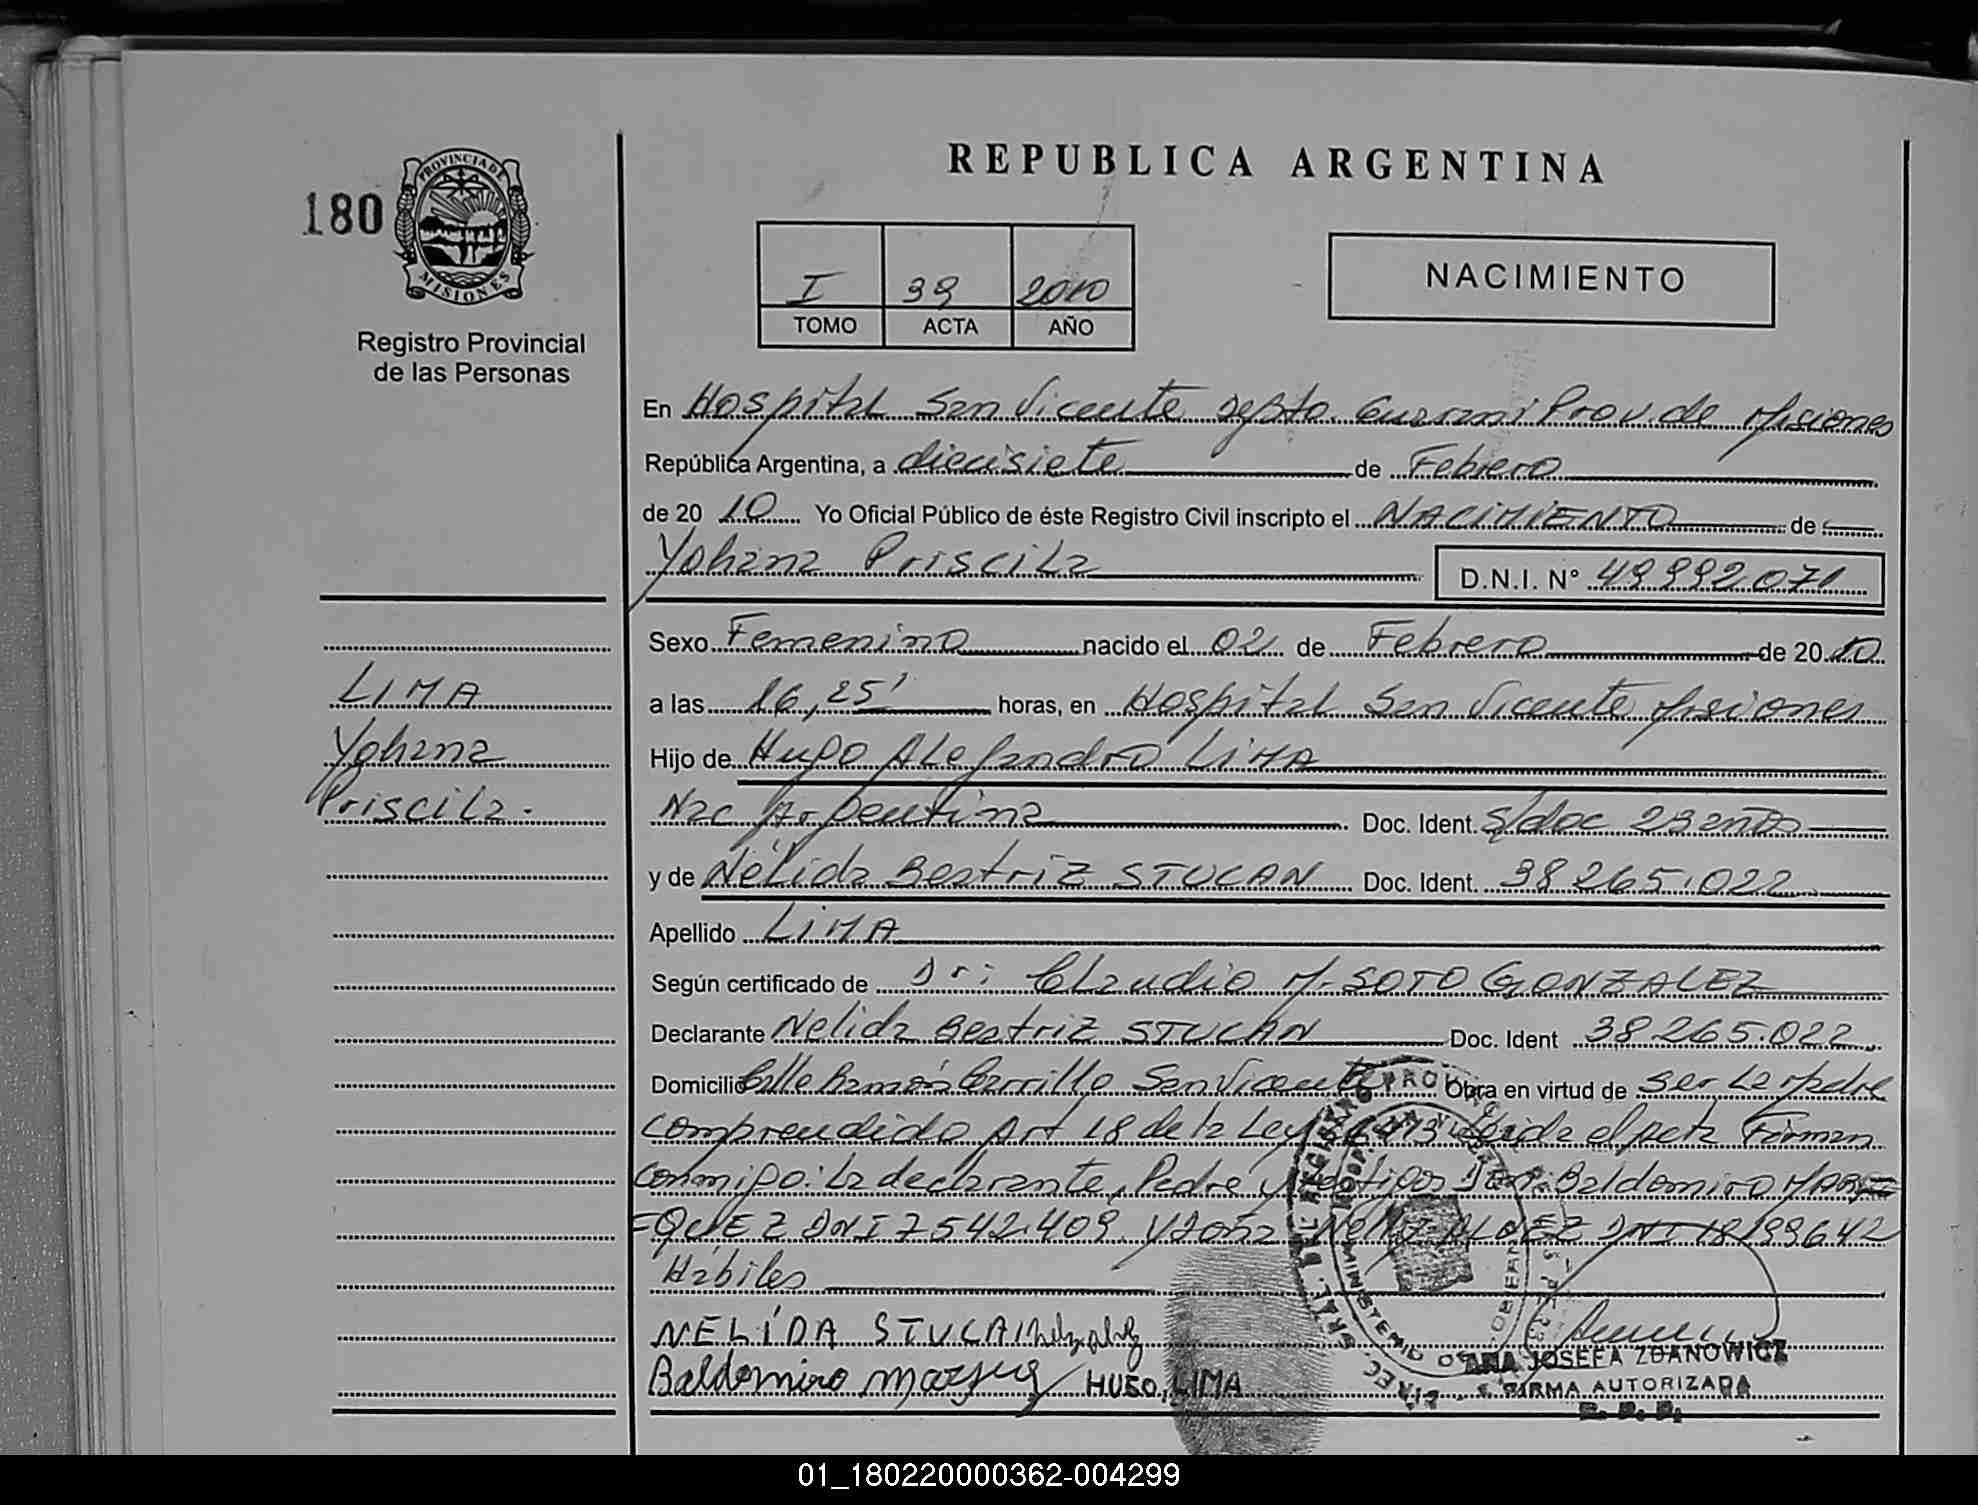 REPUBLICA ARGENTINA
180
PROVINCIA DE
MISIONES
Registro Provincial
de las Personas
I 39 2010
TOMO ACTA AÑO
NACIMIENTO
En Hospital San Vicente depto. Guarani Prov. de Misiones
República Argentina, a diecisiete de Febrero
de 20 10 Yo Oficial Público de éste Registro Civil inscripto el NACIMIENTO de
Yohana Priscila D.N.I. N° 49992071
Sexo Femenino nacido el 02 de Febrero de 20 10
a las 16,25' horas, en Hospital San Vicente Misiones
Hijo de Hugo Alejandro LIMA
Nac Argentina Doc. Ident. s/doc 23 años
y de Nélida Beatriz STUCAN Doc. Ident. 38265.022
Apellido LIMA
Según certificado de Dr: Claudio M. SOTO GONZALEZ
Declarante Nelida Beatriz STUCAN Doc. Ident 38265.022
Domicilio Calle Ramón Carrillo San Vicente Obra en virtud de ser la Madre
comprendido Art 18 de la Ley Leida el acta Firman
conmigo: la declarante, Padre y testigos Baldomiro MAR=
=QUEZ DNI 7542.409 y Doña DNI 18199642
Hábiles
LIMA
Yohana
Priscila.
NELIDA STUCAN
Baldomiro Marquez HUGO LIMA
ANA JOSEFA ZDANOWICZ
FIRMA AUTORIZADA
R. P. P.
01_180220000362-004299